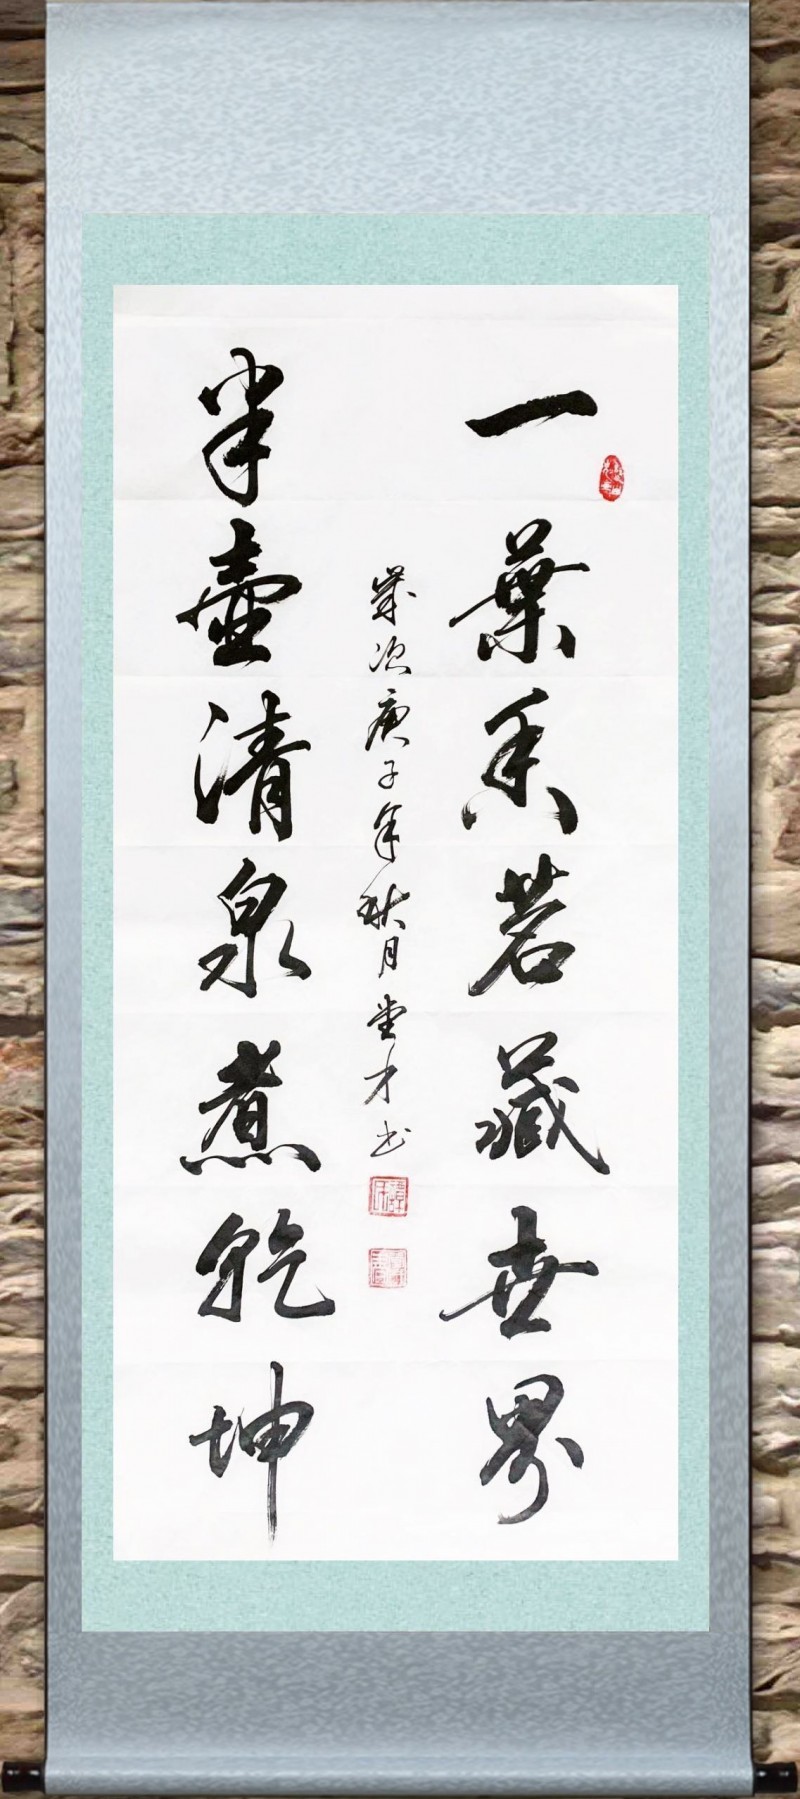 一葉香茗藏世界
半壺清泉煮乾坤
歲次庚子年秋月堂才书